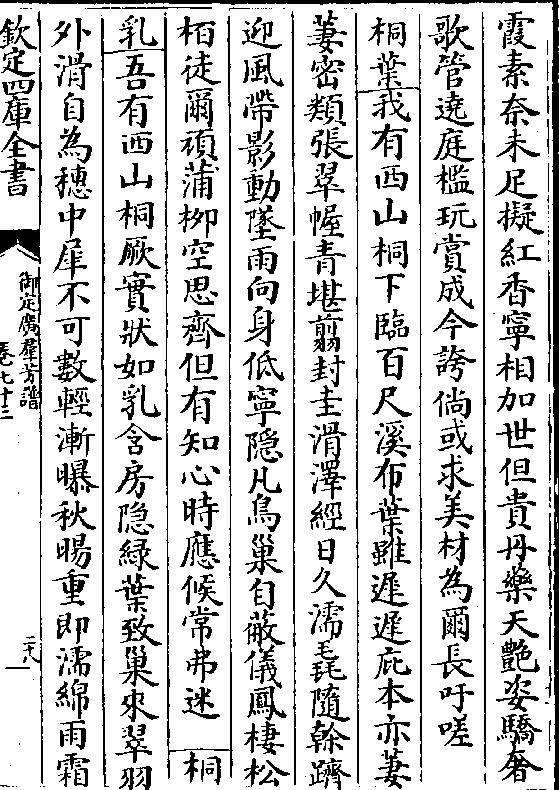 霞素柰未足擬紅香寧相加世但貴丹藥天艷姿驕奢
歌管遶庭檻玩賞成今誇倘或求美材為爾長吁嗟
桐葉我有西山桐下臨百尺溪布葉雖遲遲庇本亦萋
萋密類張翠幄青堪翦封圭滑澤經日久濡毳隨幹躋
迎風帶影動墜雨向身低寧隱凡鳥巢自蔽儀鳳棲松
栢徒爾頑蒲栁空思齊但有知心時應候常弗迷 桐
乳吾有西山桐厥實狀如乳含房隱綠葉致巢來翠羽
外滑自為穗中犀不可數輕漸曝秋暘重即濡綿雨霜
欽定四庫全書
御定廣羣芳譜
卷七十三
二八